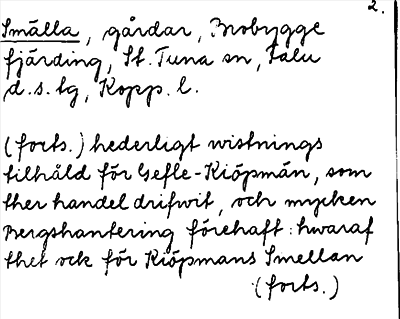 2.
Smälla, gårdar, Brobygge
fjärding, St. Tuna sn, Falu
d.s. lg, Kopp. l.
(forts.) hederligt wistnings
tilhåld för Gefle-Kiöpmän, som
ther handel drifwit, och mycken
Bergshantering förehaft: hwaraf
thet ock för Kiöpmans Smellan
(forts.)